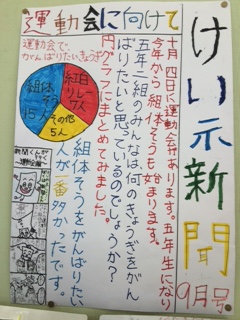 けい示新聞
9月号
運動会に向けて
十月四日に運動会があります。五年生になり
今年から組体そうも始まります。
五年二組のみんなは何のきょうぎをがん
ばりたいと思っているのでしょうか?
円グラフにまとめてみました。
運動会で、
がんばりたいきょうぎ
紅白
リレー
7人
組体
そう
15人
その他
5人
組体そうをがんばりたい
人が一番多かったです。